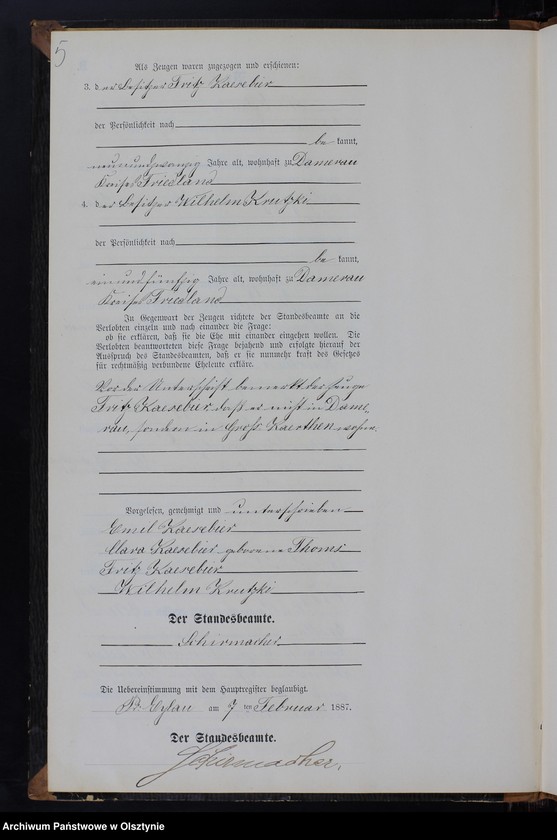 5
Als Zeugen waren zugezogen und erschienen:
3. der Besitzer Fritz Kaesebier
der Persönlichkeit nach
be kannt,
neunundzwanzig Jahre alt, wohnhaft zu Damerau
Kreises Friedland
4. der Besitzer Wilhelm Krutzki
der Persönlichkeit nach
be kannt,
einundfünfzig Jahre alt, wohnhaft zu Damerau
Kreises Friedland
In Gegenwart der Zeugen richtete der Standesbeamte an die
Verlobten einzeln und nach einander die Frage:
ob sie erklären, daß sie die Ehe mit einander eingehen wollen. Die
Verlobten beantworteten diese Frage bejahend und erfolgte hierauf der
Ausspruch des Standesbeamten, daß er sie nunmehr kraft des Gesetzes
für rechtmäßig verbundene Eheleute erkläre.
Vor der Unterschrift bemerkt der Zeuge
Fritz Kaesebier, daß er nicht in Dame-
rau, sondern in Gross Waerthen wohne.
Vorgelesen, genehmigt und unterschrieben
Emil Kaesebier
Clara Kaesebier geborene Thoms
Fritz Kaesebier
Wilhelm Krutzki
Der Standesbeamte.
Schirmacher
Die Uebereinstimmung mit dem Hauptregister beglaubigt.
Pr. Eylau am 7 ten Februar 1887.
Der Standesbeamte.
Schirmacher.
Archiwum Państwowe w Olsztynie